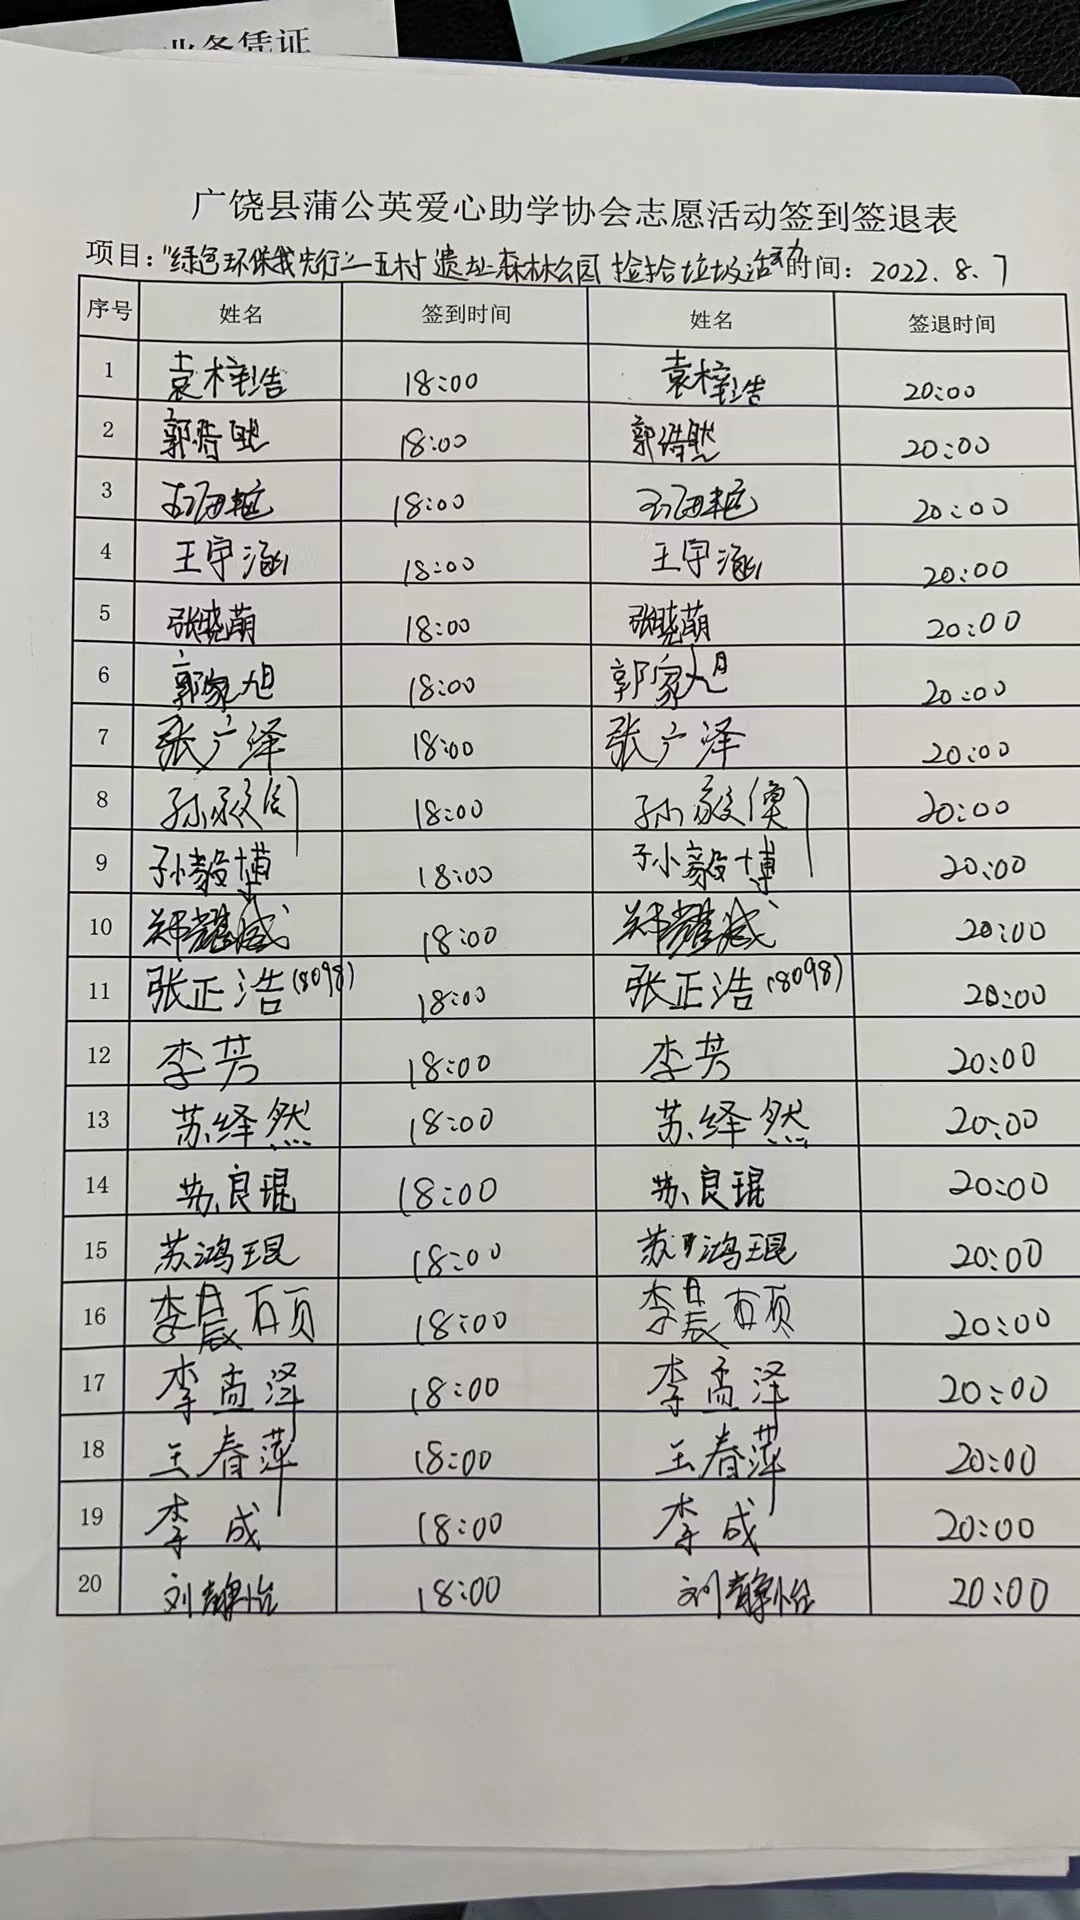 业务凭证
广饶县蒲公英爱心助学协会志愿活动签到签退表
项目："绿色环保我先行"—五村遗址森林公园捡拾垃圾活动 时间：2022.8.7
序号 姓名 签到时间 姓名 签退时间
1 袁梓浩 18:00 袁梓浩 20:00
2 郭浩然 18:00 郭浩然 20:00
3 18:00 20:00
4 王宇涵 18:00 王宇涵 20:00
5 张晓萌 18:00 张晓萌 20:00
6 郭家旭 18:00 郭家旭 20:00
7 张广泽 18:00 张广泽 20:00
8 孙 18:00 孙 20:00
9 孙毅博 18:00 孙毅博 20:00
10 郑耀斌 18:00 郑耀斌 20:00
11 张正浩(8098) 18:00 张正浩(8098) 20:00
12 李芳 18:00 李芳 20:00
13 苏绎然 18:00 苏绎然 20:00
14 苏良琨 18:00 苏良琨 20:00
15 苏鸿琨 18:00 苏鸿琨 20:00
16 李晨硕 18:00 李晨硕 20:00
17 李孟泽 18:00 李孟泽 20:00
18 王春萍 18:00 王春萍 20:00
19 李成 18:00 李成 20:00
20 刘静怡 18:00 刘静怡 20:00